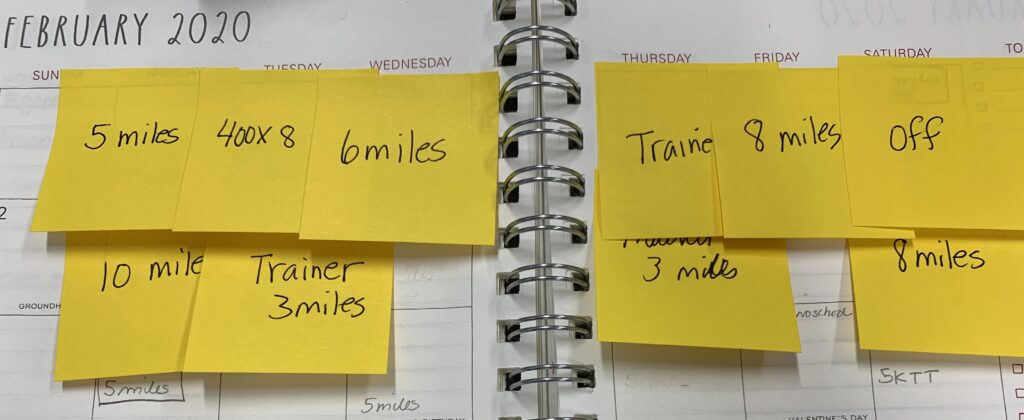 FEBRUARY 2020
TUESDAY
WEDNESDAY
THURSDAY
FRIDAY
SATURDAY
5 miles
400x8
6miles
Traine
8 miles
Off
2
10 mile
Trainer
3miles
3 miles
8miles
GROUNDH
no school
5 miles
5miles
5KTT
VALENTINE'S DAY